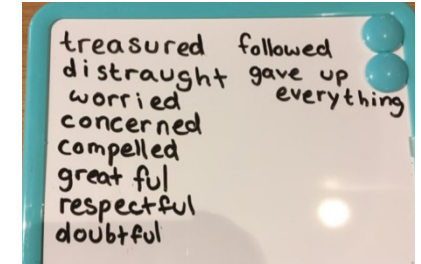 treasured
distraught
worried
concerned
compelled
great ful
respectful
doubtful
followed
gave up
everything